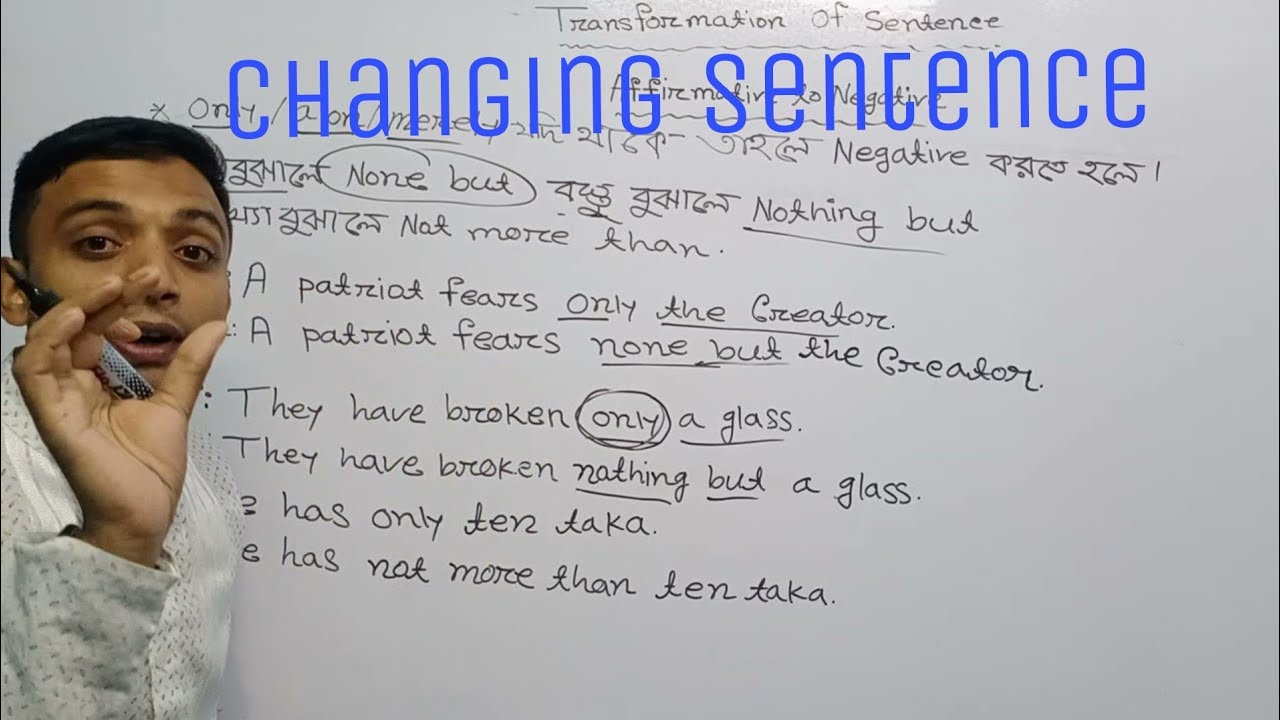 Transformation Of Sentence
CHANGING SENTENCE
Affirmative to Negative
* Only / alon / mere / যদি থাকে - তাহলে Negative করতে হলে।
বুঝালে None but বস্তু বুঝালে Nothing but
বুঝালে Not more than.
: A patriot fears only the Creator.
: A patriot fears none but the Creator.
: They have broken only a glass.
They have broken nothing but a glass.
has only ten taka.
has not more than ten taka.